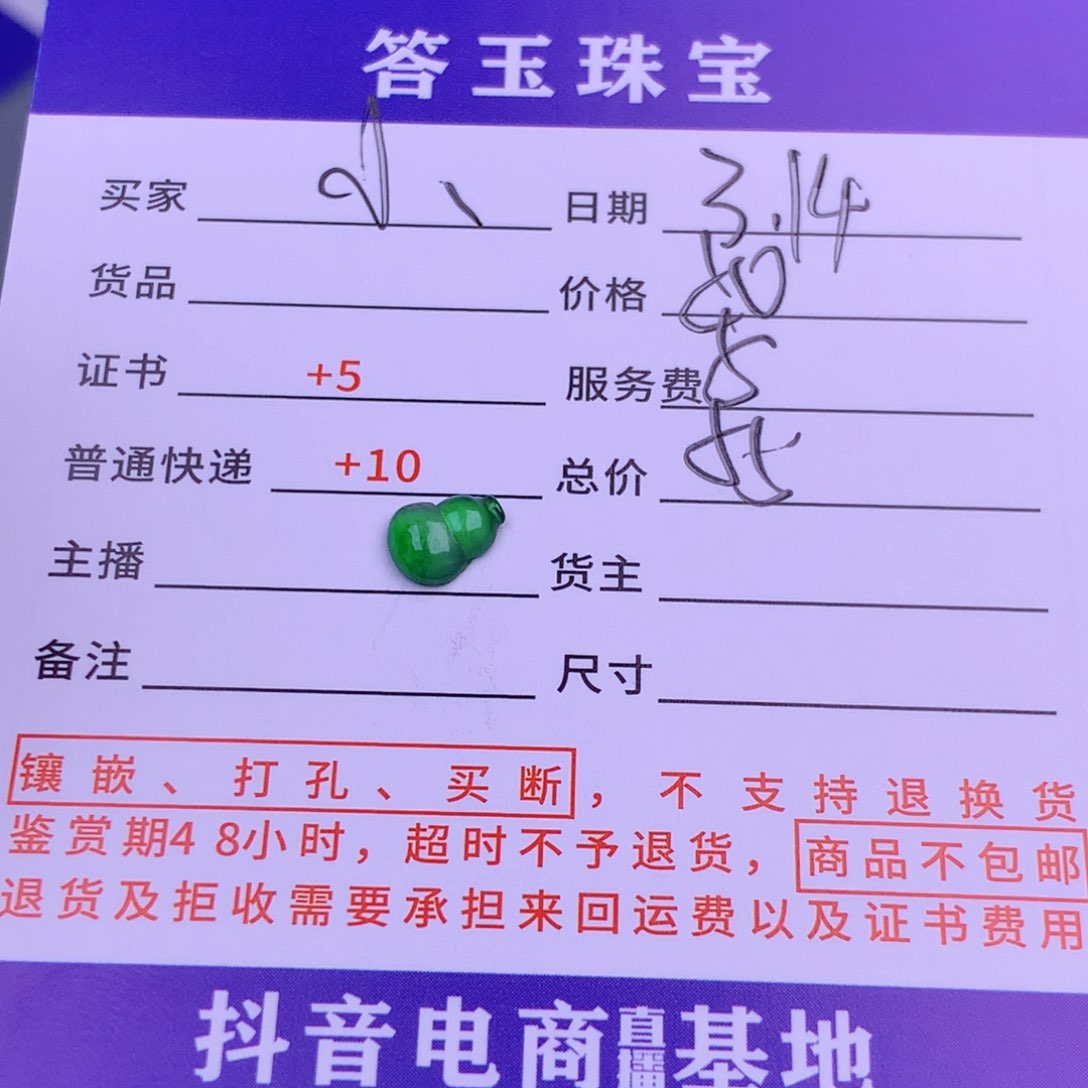 答玉珠宝
买家 日期 3.14
货品 价格
证书 +5 服务费
普通快递 +10 总价
主播 货主
备注 尺寸
镶嵌、打孔、买断，不支持退换货
鉴赏期48小时，超时不予退货，商品不包邮
退货及拒收需要承担来回运费以及证书费用
抖音电商直播基地